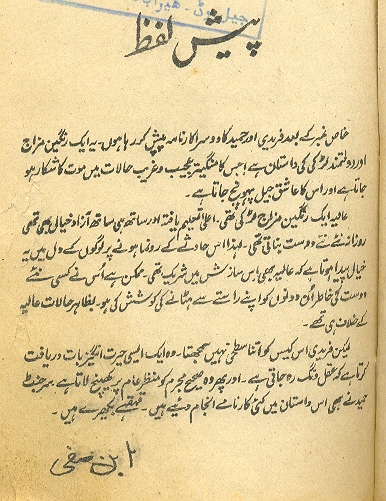 پیش لفظ
خاص نمبر کے بعد فریدی اور حمید کا دوسرا کارنامہ پیش کر رہا ہوں۔ یہ ایک رنگین مزاج
اور دولتمند لڑکی کی داستان ہے! جس کا منگیتر عجیب و غریب حالات میں موت کا شکار ہو
جاتا ہے اور اس کا عاشق جیل پہونچ جاتا ہے۔
عالیہ ایک رنگین مزاج لڑکی تھی۔ اعلیٰ تعلیم یافتہ اور ساتھ ہی ساتھ آزاد خیال بھی تھی
روزانہ نئے نئے دوست بناتی تھی۔ لہذا اس حادثے کے رونما ہونے پر لوگوں کے دل میں یہ
خیال پیدا ہوتا ہے کہ عالیہ بھی اس سازش میں شریک تھی۔ ممکن ہے اُس نے کسی نئے
دوست کی خاطر اُن دونوں کو اپنے راستے سے ہٹانے کی کوشش کی ہو۔ بظاہر حالات عالیہ
کے خلاف ہی تھے۔
لیکن فریدی اس کیس کو اتنا سطحی نہیں سمجھتا۔ وہ ایک ایسی حیرت انگیز بات دریافت
کرتا ہے کہ عقل دنگ رہ جاتی ہے۔ اور پھر وہ صحیح مجرم کو منظرِ عام پر کھینچ لاتا ہے۔ سرجنٹ
حمید نے بھی اس داستان میں کئی کارنامے انجام دئیے ہیں۔ قہقہے بکھیرے ہیں۔
ابن صفی